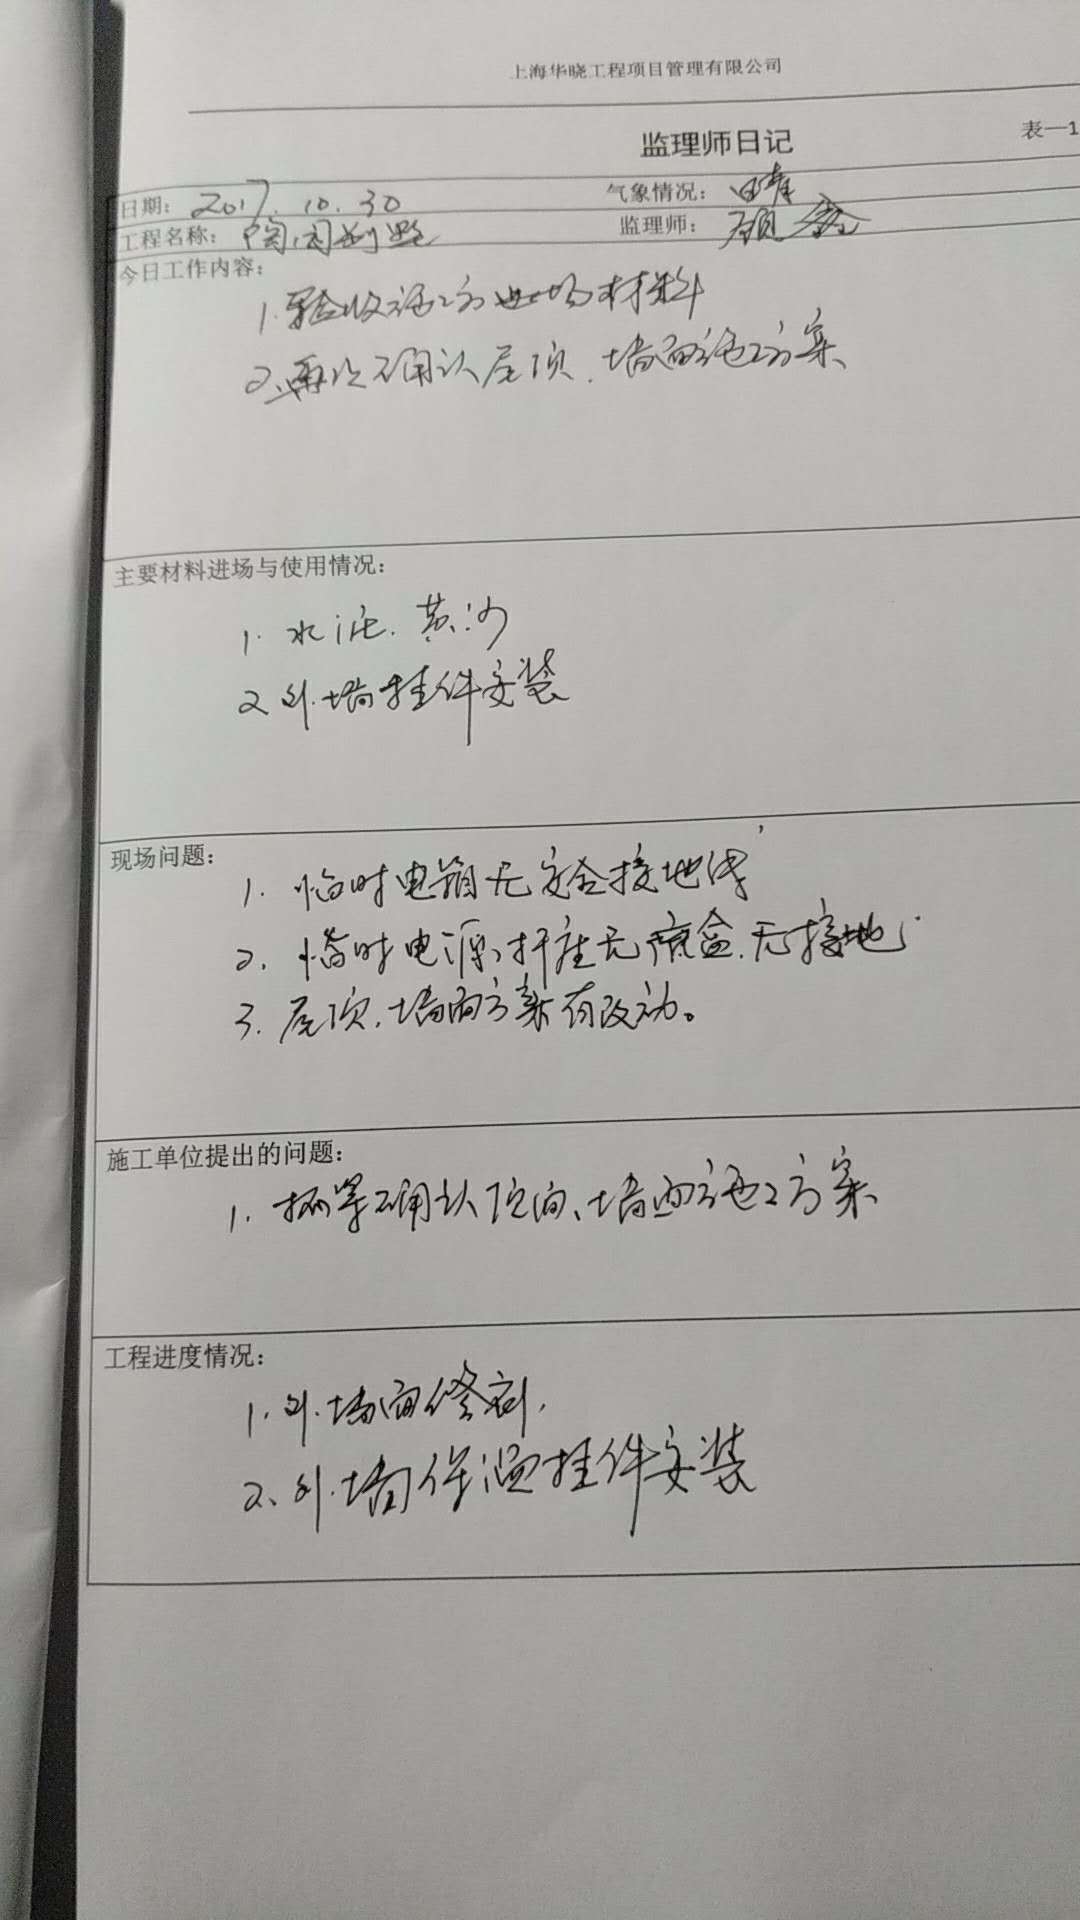 上海华晓工程项目管理有限公司
监理师日记
表一1
日期: 2017.10.30 气象情况: 晴
工程名称: 陶园别墅 监理师: 顾
今日工作内容:
1. 验收施工方进场材料
2. 再次确认屋顶、墙面施工方案
主要材料进场与使用情况:
1. 水泥、黄沙
2 外墙挂件安装
现场问题:
1. 临时电箱无安全接地线
2. 临时电源插座无底盒、无接地
3. 屋顶、墙面方案有改动。
施工单位提出的问题:
1. 确认顶面、墙面施工方案
工程进度情况:
1. 外墙面修
2、外墙保温挂件安装